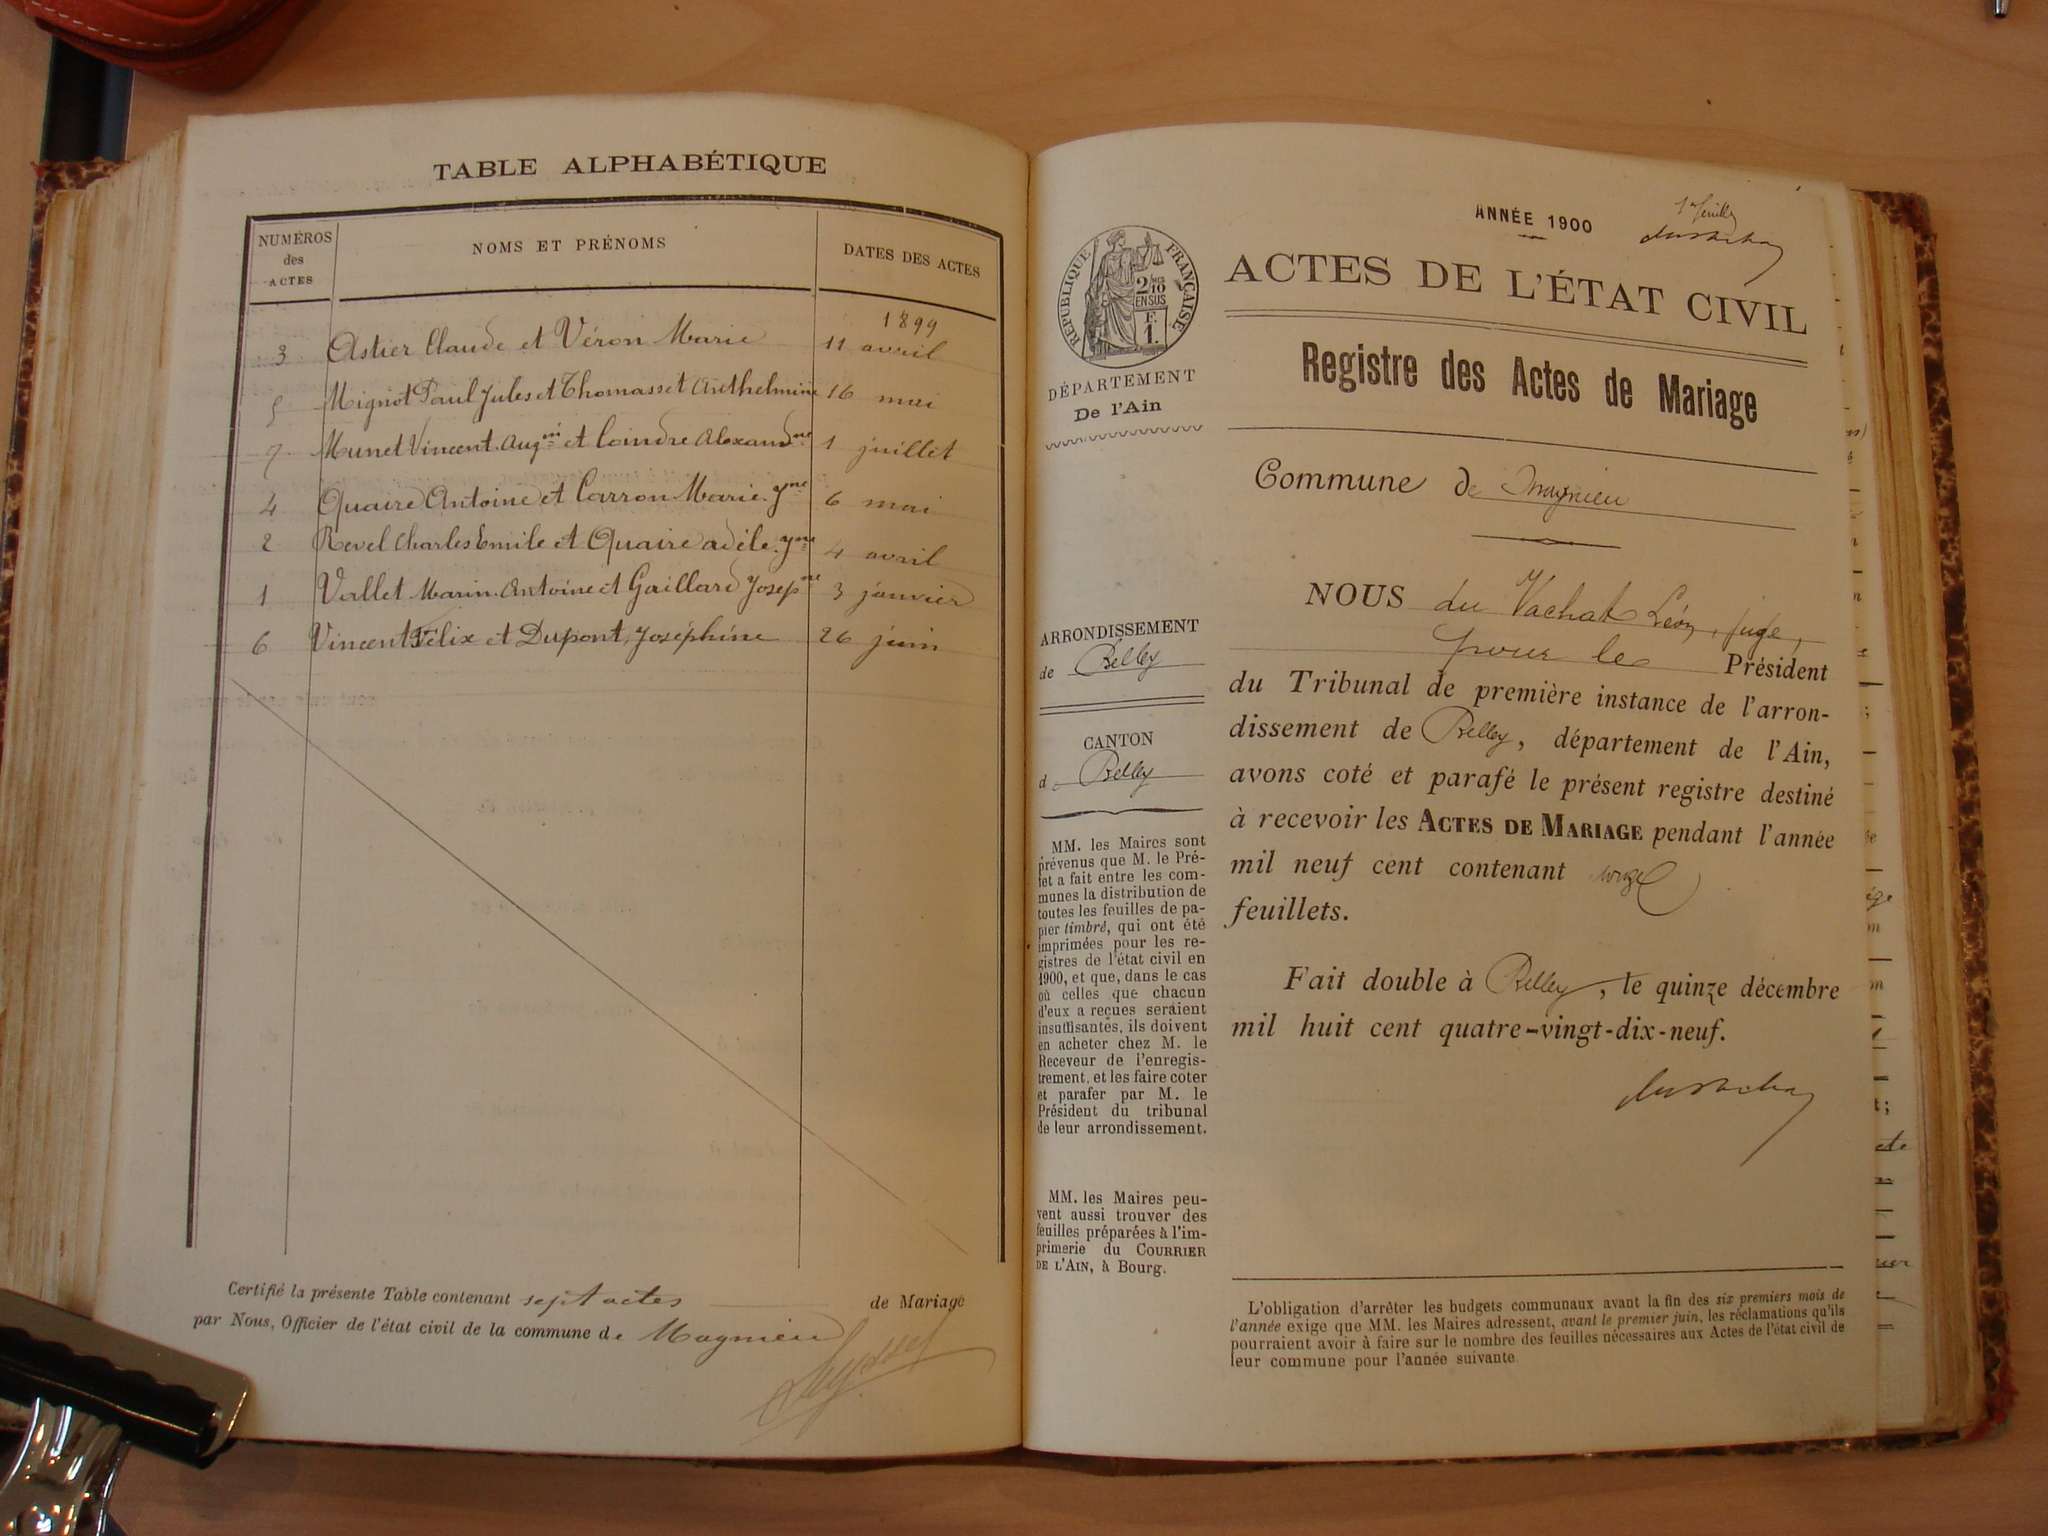 TABLE ALPHABÉTIQUE
NUMÉROS
des
ACTES
NOMS ET PRÉNOMS
DATES DES ACTES
1899
3 Astier Claude et Véron Marie 11 avril
5 Mignot Paul Jules et Thomasset Anthelmine 16 mai
7 Munet Vincent Augin et Coindre Alexandne 1 juillet
4 Quaire Antoine et Carron Marie Jne 6 mai
2 Revel Charles Emile et Quaire adèle Jne 4 avril
1 Vallet Marin Antoine et Gaillard Josepne 3 janvier
6 Vincent Félix et Dupont Joséphine 26 juin
Certifié la présente Table contenant sept actes de Mariage
par Nous, Officier de l'état civil de la commune de Magnieu
ANNÉE 1900
RÉPUBLIQUE FRANÇAISE
2/10
EN SUS
F.
1.
ACTES DE L'ÉTAT CIVIL
Registre des Actes de Mariage
DÉPARTEMENT
De l'Ain
Commune de Magnieu
NOUS du Vachat Léon, juge,
pour le Président
du Tribunal de première instance de l'arron-
dissement de Belley, département de l'Ain,
avons coté et parafé le présent registre destiné
à recevoir les ACTES DE MARIAGE pendant l'année
mil neuf cent contenant
feuillets.
Fait double à Belley, le quinze décembre
mil huit cent quatre-vingt-dix-neuf.
ARRONDISSEMENT
de Belley
CANTON
d Belley
MM. les Maires sont
prévenus que M. le Pré-
fet a fait entre les com-
munes la distribution de
toutes les feuilles de pa-
pier timbré, qui ont été
imprimées pour les re-
gistres de l'état civil en
1900, et que, dans le cas
où celles que chacun
d'eux a reçues seraient
insuffisantes, ils doivent
en acheter chez M. le
Receveur de l'enregis-
trement, et les faire coter
et parafer par M. le
Président du tribunal
de leur arrondissement.
MM. les Maires peu-
vent aussi trouver des
feuilles préparées à l'im-
primerie du COURRIER
DE L'AIN, à Bourg.
L'obligation d'arrêter les budgets communaux avant la fin des six premiers mois de
l'année exige que MM. les Maires adressent, avant le premier juin, les réclamations qu'ils
pourraient avoir à faire sur le nombre des feuilles nécessaires aux Actes de l'état civil de
leur commune pour l'année suivante